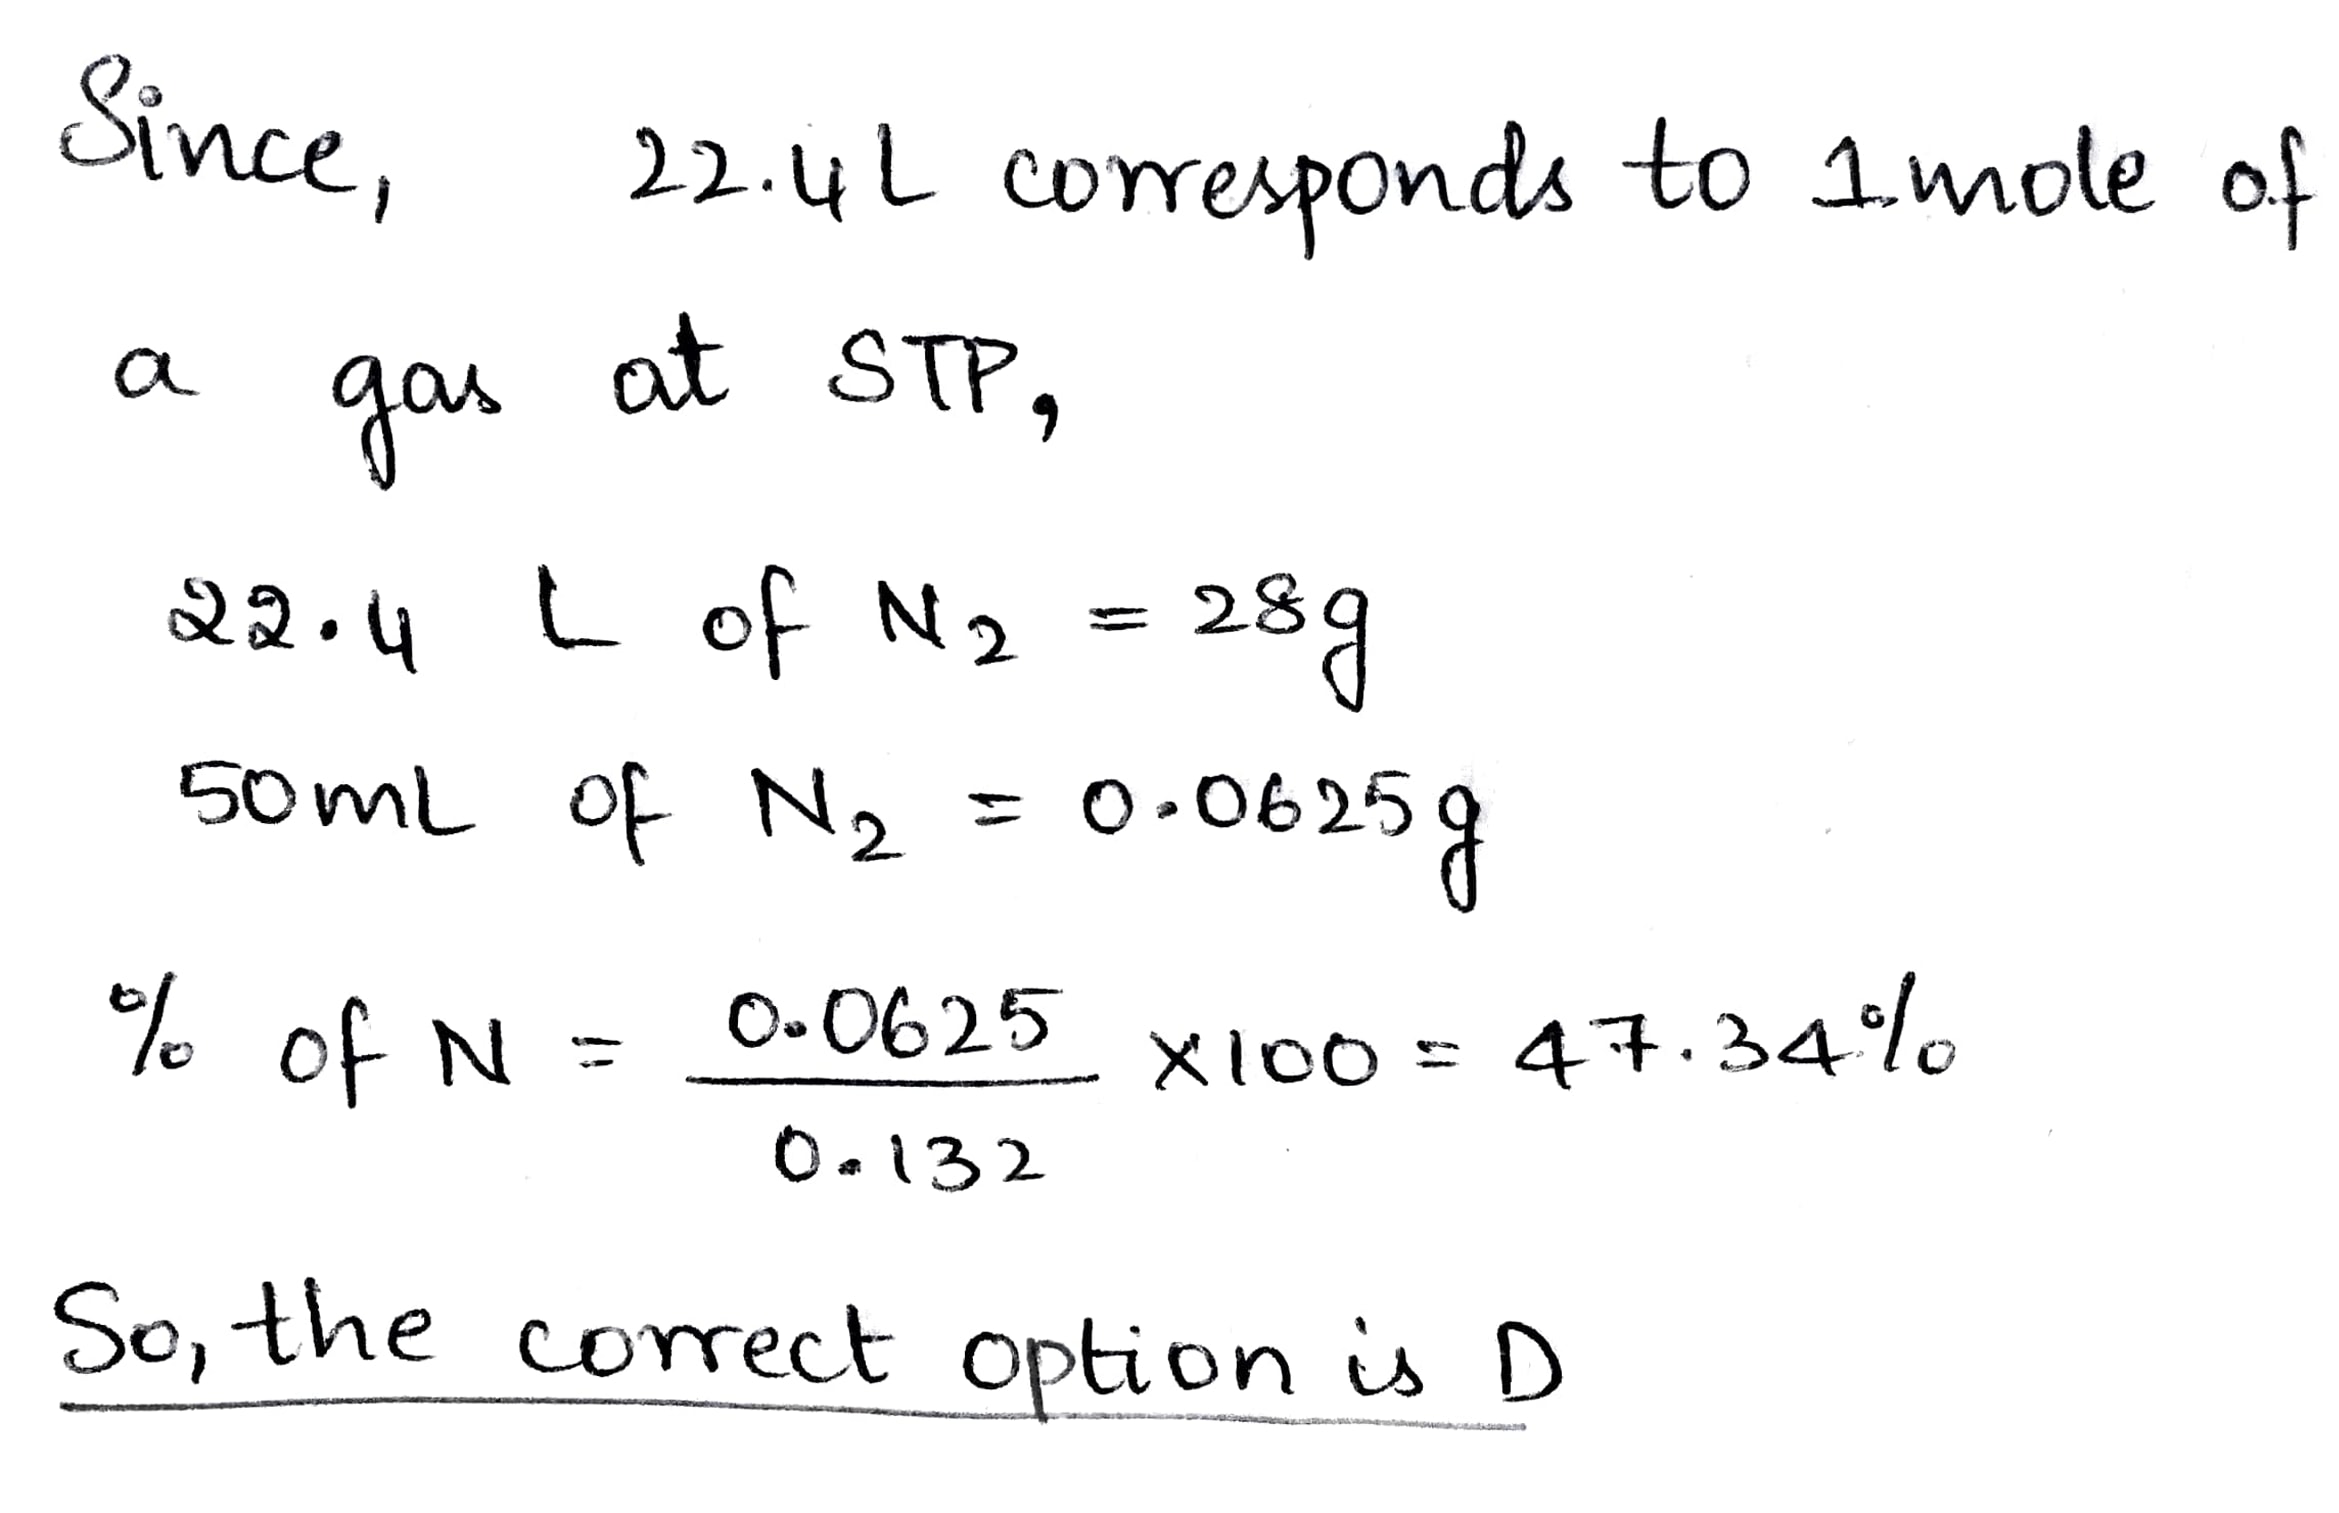 Since, 22.4L corresponds to 1 mole of
a gas at STP,
22.4 L of N₂ = 28g
50mL of N₂ = 0.0625g
% of N = 0.0625/0.132 x100 = 47.34%
So, the correct option is D